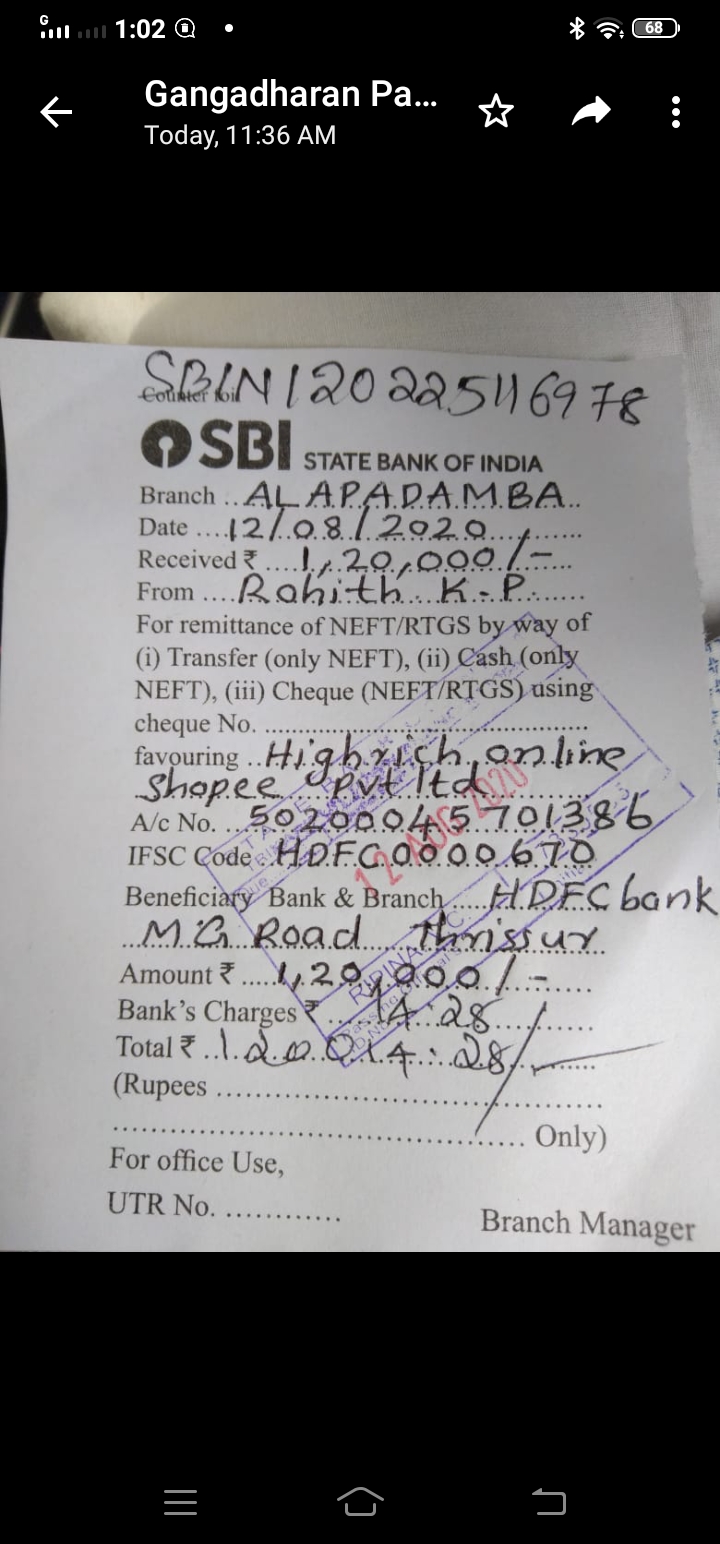 G
1:02
68
Gangadharan Pa...
Today, 11:36 AM
SBIN120225116978
Counter foil
SBI STATE BANK OF INDIA
Branch ..ALAPADAMBA..
Date ....12/08/2020..........
Received ₹ ....1,20,000/-....
From ....Rohith K.P.......
For remittance of NEFT/RTGS by way of
(i) Transfer (only NEFT), (ii) Cash (only
NEFT), (iii) Cheque (NEFT/RTGS) using
cheque No. ................................................
favouring ..Highrich online
Shopee Pvt ltd
A/c No. ...50200045701386
IFSC Code ..HDFC0000670
Beneficiary Bank & Branch .....HDFC bank
...MG Road Thrissur
Amount ₹ .....1,20,000/-......
Bank's Charges ₹ ....14:28..............
Total ₹ ..120014:28/-.......
(Rupees ......................................................
.......................................................... Only)
For office Use,
UTR No. ............
Branch Manager
12 AUG 2020
RIPINA